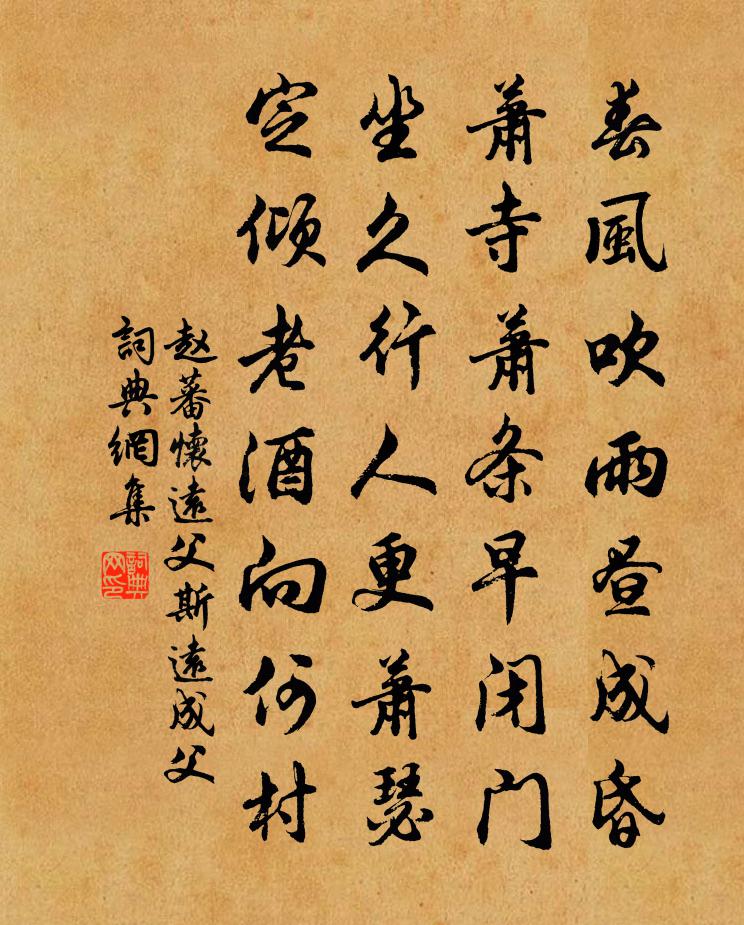 春風吹雨昼成昏
蕭寺蕭条早闭门
坐久行人更蕭瑟
定傾老酒向何村
赵蕃懷遠父斯遠成父
詞典網集
詞典网印